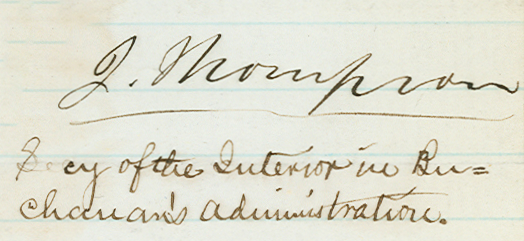 J. Thompson
Secy of the Interior in Bu=
chanan's administration.